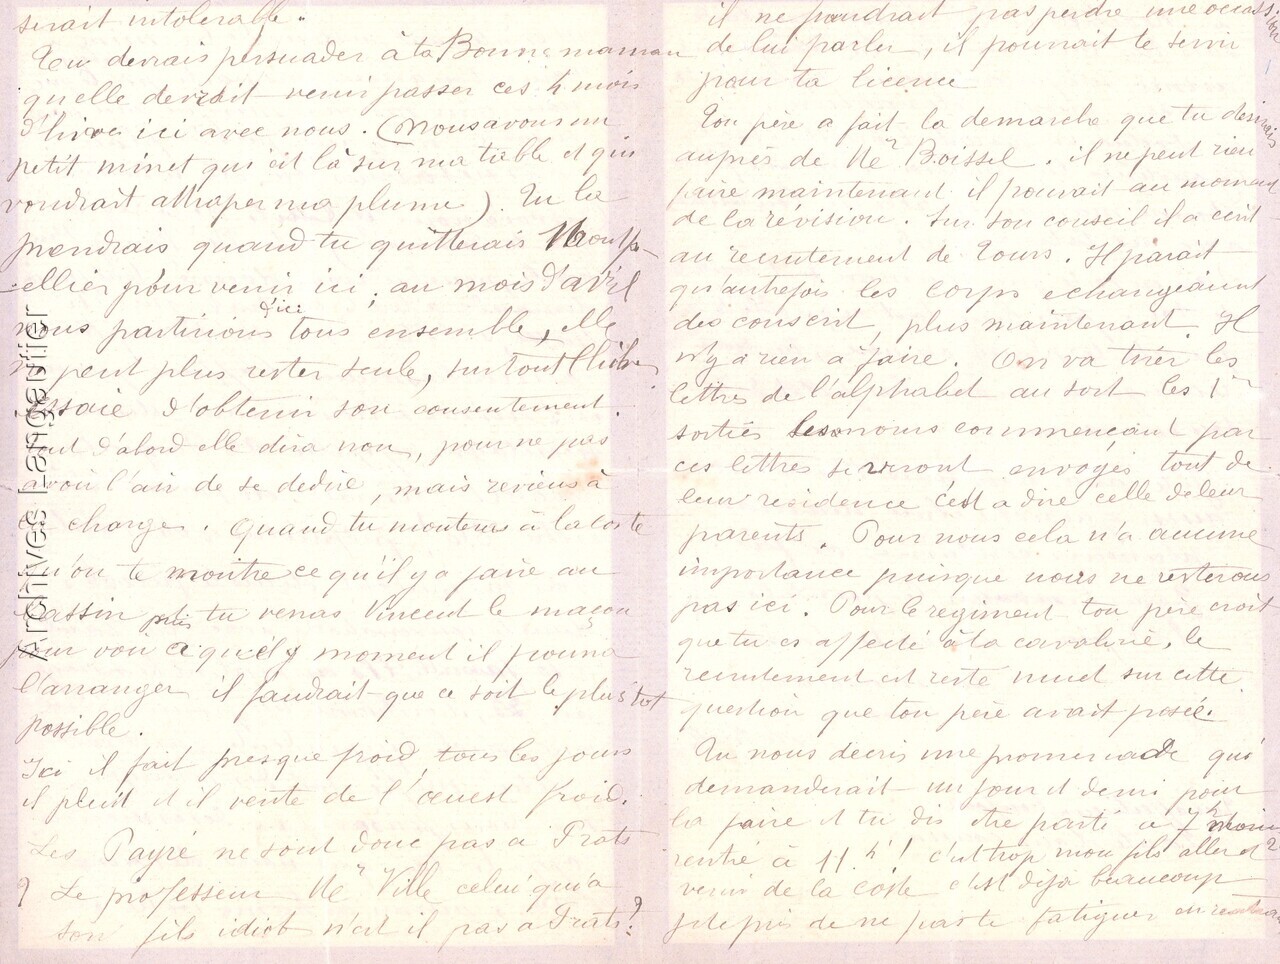 serait intolerable.
Tu devrais persuader à ta Bonne maman
qu'elle devrait venir passer ces 4 mois
d'hiver ici avec nous. (Nous avons un
petit minet qui est là sur ma table et qui
voudrait attraper ma plume). Tu la
prendrais quand tu quitterais Montp-
ellier pour venir ici, au mois d'avril
nous partirions d'ici tous ensemble, elle
ne peut plus rester seule, surtout l'hiver,
essaie d'obtenir son consentement.
tout d'abord elle dira non, pour ne pas
avoir l'air de se dedire, mais reviens à
la charge. Quand tu monteras à la coste
qu'on te montre ce qu'il y a faire au
bassin puis tu verras Vincent le maçon
pour voir à quel moment il pourra
l'arranger il faudrait que ce soit le plus tot
possible.
Ici il fait presque froid, tous les jours
il pleut et il vente de l'ouest froid.
Les Payré ne sont donc pas a Prats
? Le professeur Mr Ville celui qui a
son fils idiot n'est il pas a Prats?
il ne faudrait pas perdre une occasion
de lui parler, il pourrait te servir
pour ta licence
Ton père a fait la demarche que tu desirais
auprès de Mr Boissel. il ne peut rien
faire maintenant il pouvait au moment
de la révision. Sur son conseil il a ecrit
au recrutement de Tours. Il parait
qu'autrefois les corps echangeaient
des conscrit, plus maintenant. Il
n'y a rien à faire. On va tirer les
lettres de l'alphabet au sort les 1r
sorties les noms commençant par
ces lettres seront envoyés tout de
leur residence c'est a dire celle de leur
parents. Pour nous cela n'a aucune
importance puisque nous ne resterons
pas ici. Pour le regiment ton père croit
que tu es affecté à la cavalerie, le
recrutement est resté muet sur cette
question que ton père avait posée.
Tu nous decris une promenade qui
demanderait un jour et demi pour
la faire et tu dis etre parti a 7h
rentré à 11h! c'est trop mon fils aller et
venir de la coste c'est deja beaucoup
je te prie de ne pas te fatiguer en
Archives Langautier